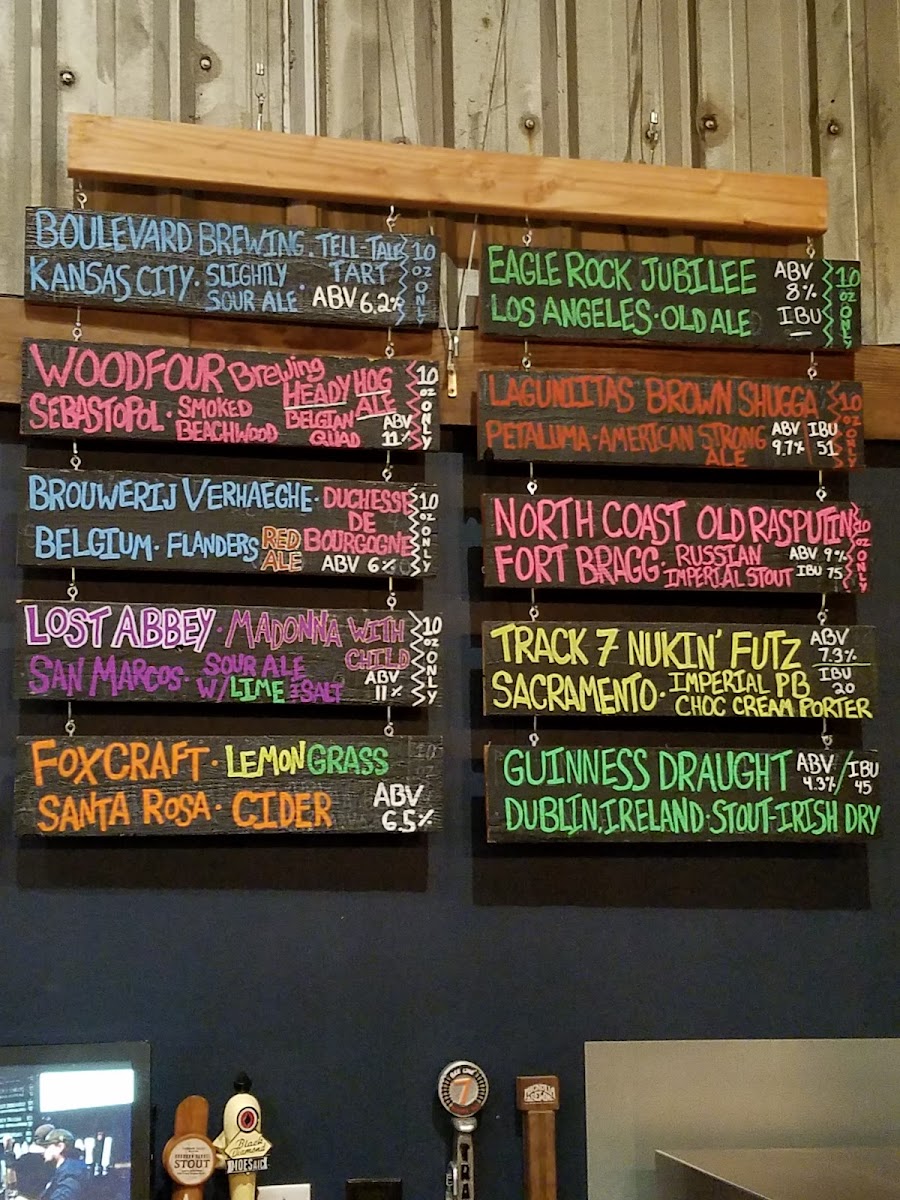 BOULEVARD BREWING. TELL-TALE
KANSAS CITY. SLIGHTLY TART
SOUR ALE. ABV 6.2%
10 OZ ONLY
WOODFOUR Brewing HEADY HOG
SEBASTOPOL. SMOKED ALE
BEACHWOOD BELGIAN QUAD ABV 11%
10 OZ ONLY
BROUWERIJ VERHAEGHE. DUCHESSE
DE
BELGIUM. FLANDERS RED BOURGOGNE
ALE ABV 6%
10 OZ ONLY
LOST ABBEY. MADONNA WITH
CHILD
SAN MARCOS. SOUR ALE
W/ LIME & SALT ABV 11%
10 OZ ONLY
FOXCRAFT. LEMONGRASS
SANTA ROSA. CIDER ABV 6.5%
EAGLE ROCK JUBILEE ABV 8%
LOS ANGELES. OLD ALE IBU —
10 OZ ONLY
LAGUNIITAS BROWN SHUGGA
PETALUMA-AMERICAN STRONG ABV IBU
ALE 9.7% 51
10 OZ ONLY
NORTH COAST OLD RASPUTIN
FORT BRAGG. RUSSIAN ABV 9%
IMPERIAL STOUT IBU 75
10 OZ ONLY
TRACK 7 NUKIN' FUTZ ABV 7.3%
SACRAMENTO. IMPERIAL PB IBU 20
CHOC CREAM PORTER
GUINNESS DRAUGHT ABV 4.3% / IBU 45
DUBLIN, IRELAND. STOUT-IRISH DRY
STOUT
Black Diamond
BEE LINE
7
TRA
MAGNOLIA